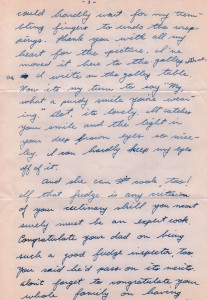 - 3 -
could hardly wait for my tum-
bling fingers to undo the wrap-
pings. Thank you with all my
heart for the picture. I've
moved it here to the galley
as I write on the galley table.
Now its my turn to say My
what a purdy smile you're wear-
ing. Dot, its lovely. It catches
your smile and the light in
your deep brown eyes so nice-
ley. I can hardly keep my eyes
off of it.
And she can cook, too!
If that fudge is any criterion
of your culinary skill you most
surely must be an expert cook
Congratulate your dad on being
such a good fudge inspector too
You said he'd pass on its merits.
don't forget to congratulate your
whole family on having